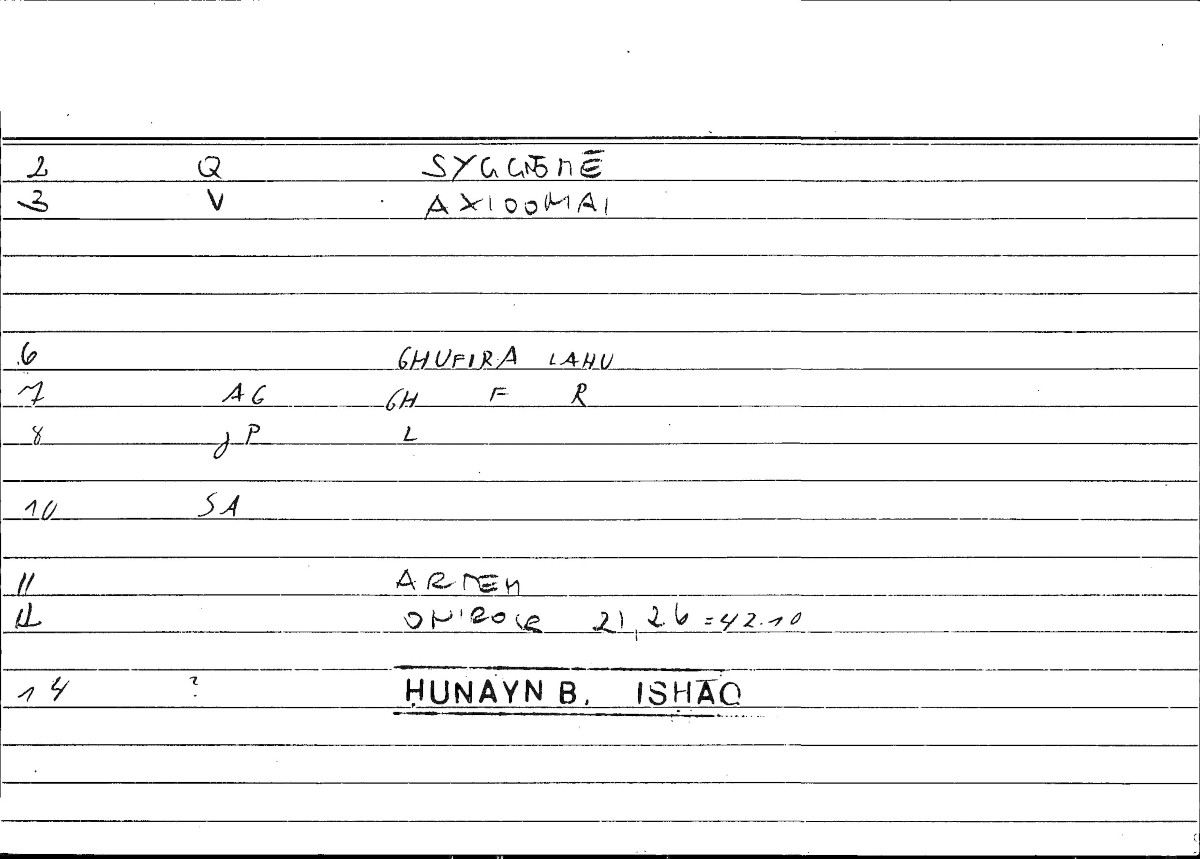 2 Q SYGGNŌMĒ
3 V AXIOOMAI
6 GHUFIRA LAHU
7 AG GH F R
8 JP L
10 SA
11 ARTEM
12 ONIROCR 21,26=42.10
14 ? ḤUNAYN B. ISḤĀQ